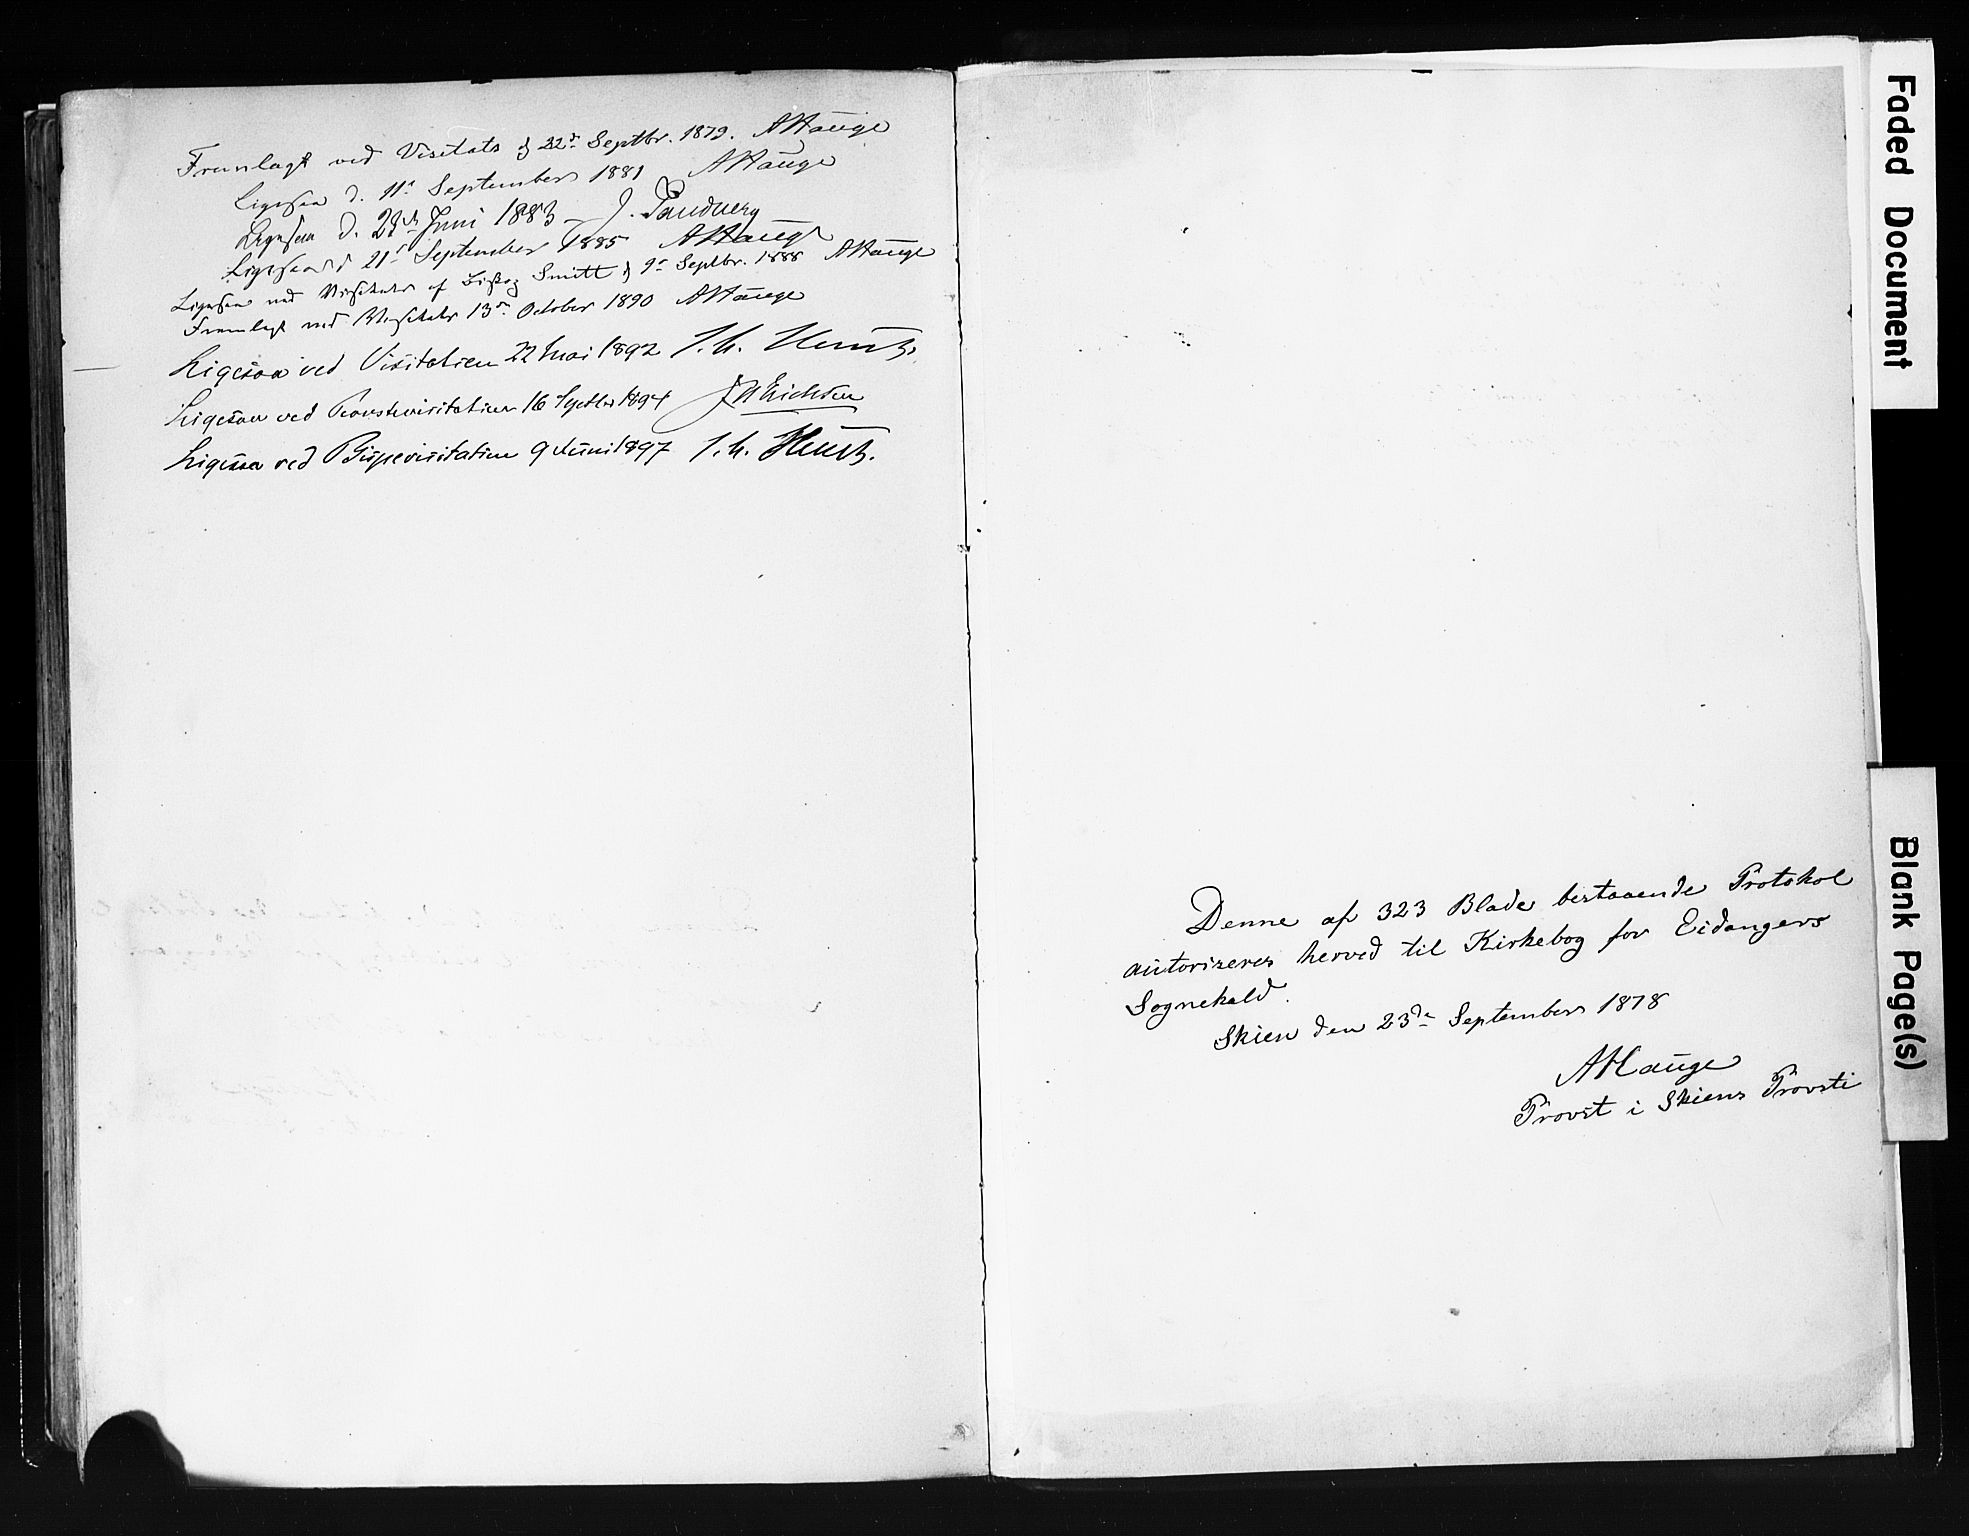 Fremlagt ved Visitats d 22de Septbr. 1879. AHauge
Ligesaa d. 11te September 1881 AHauge
Ligesaa d. Juni 1883 J. Sandberg
Ligesaa d 21de September 1885 AHauge
Ligesaa ved Visitats af Biskop Smitt d 9de Septbr. 1888 AHauge
Fremlagt ved Visitats 13de October 1890 AHauge
Ligesaa ved Visitatien 22 Mai 1892 J. N.
Ligesaa ved Provstevisitatien 16 Septbr 1894
Ligesaa ved Bispevisitatien 9 Juni 1897
Denne af 323 Blade bestaaende Protokol
autoriseres herved til Kirkebog for Eidangers
Sognekald.
Skien den 23de September 1878
AHauge
Provst i Skiens Provsti
Faded Document
Blank Page(s)